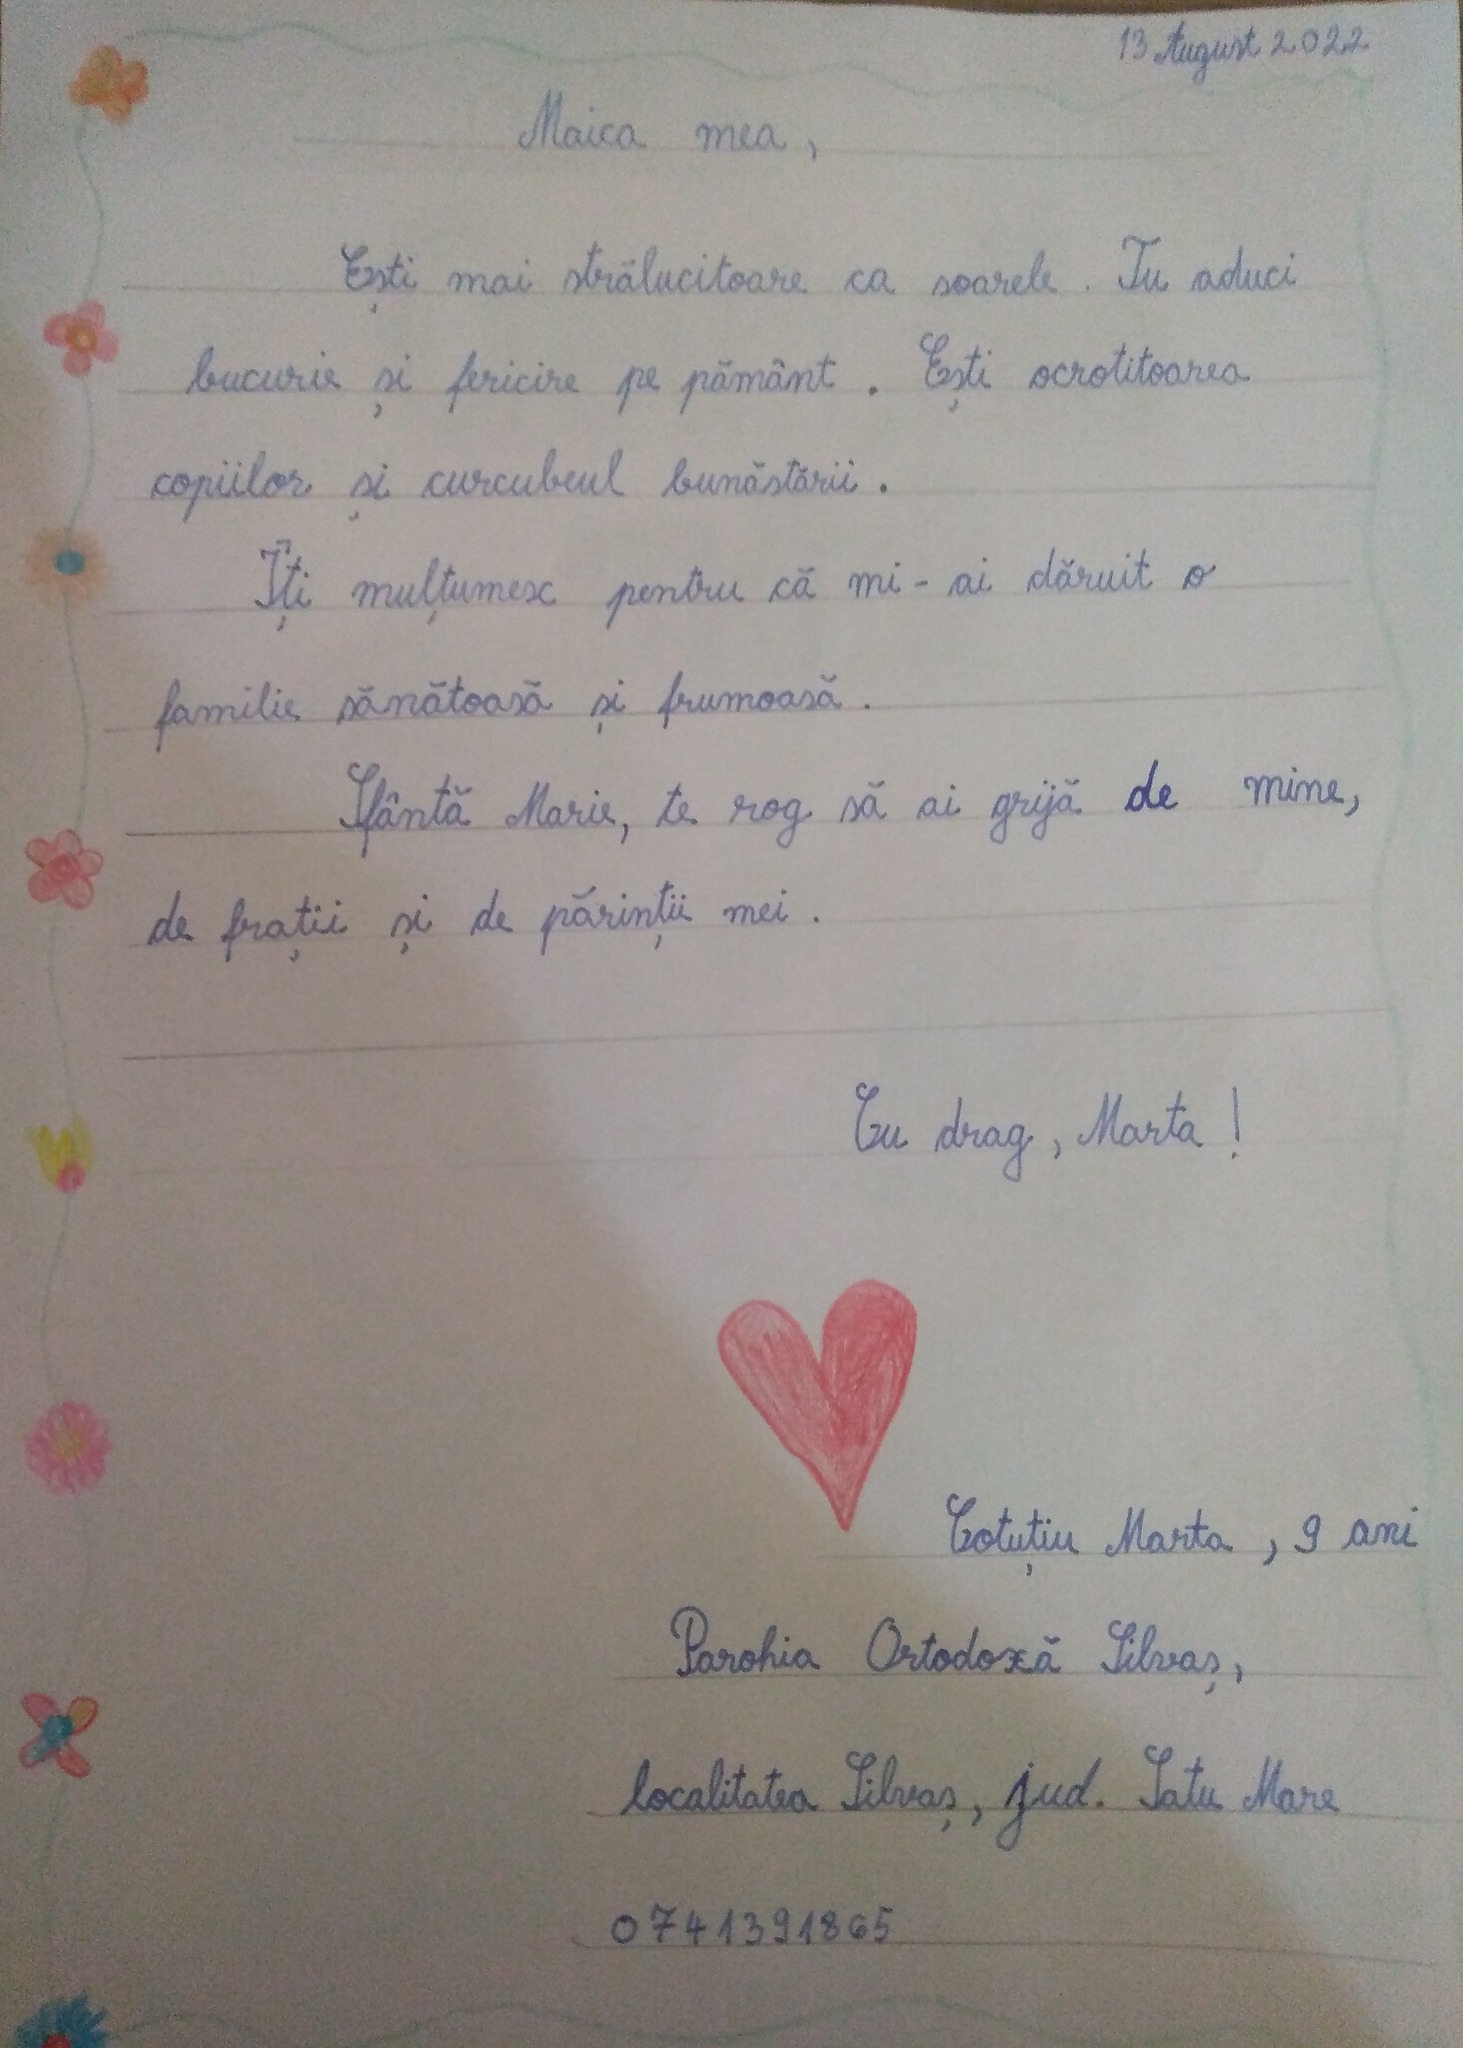 13 August 2022
Maica mea,
Ești mai strălucitoare ca soarele. Tu aduci
bucurie și fericire pe pământ. Ești ocrotitoarea
copiilor și curcubeul bunăstării.
Îți mulțumesc pentru că mi-ai dăruit o
familie sănătoasă și frumoasă.
Sfântă Marie, te rog să ai grijă de mine,
de frații și de părinții mei.
Cu drag, Marta!
Cotuțiu Marta, 9 ani
Parohia Ortodoxă Silvaș,
localitatea Silvaș, jud. Satu Mare
0741391865